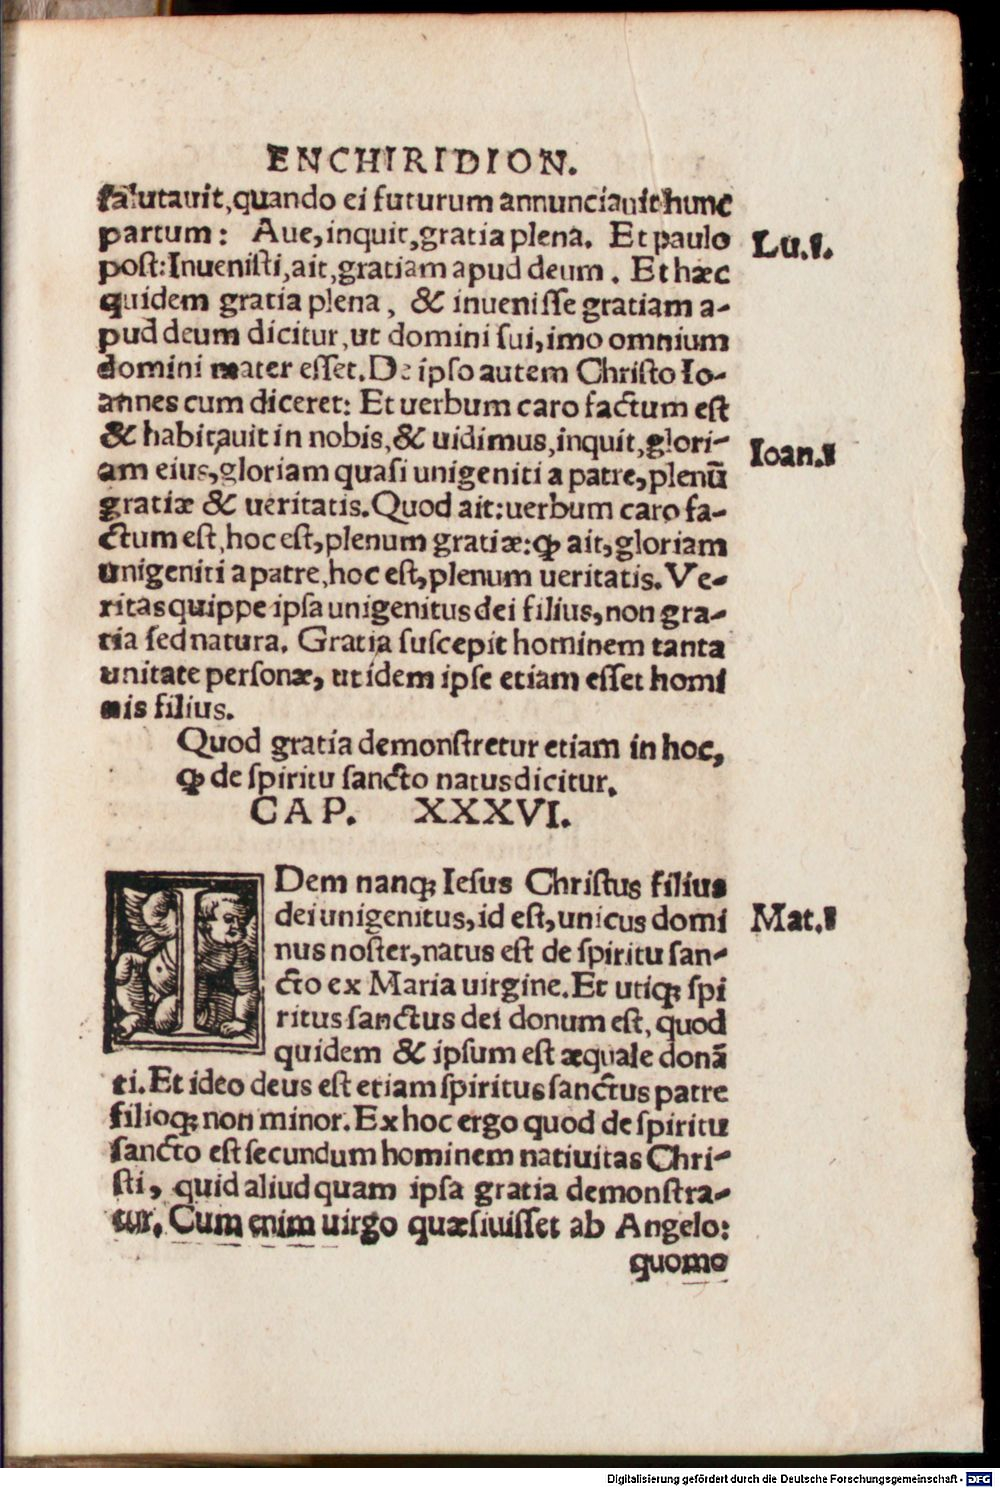 ENCHIRIDION.
ſalutauit,quando ei futurum annunciauit hunc
partum: Aue,inquit,gratia plena. Et paulo
Lu.1.
poſt:Inueniſti,ait,gratiam apud deum. Et hæc
quidem gratia plena, & inueniſſe gratiam a-
pud deum dicitur,ut domini ſui,imo omnium
domini mater eſſet.De ipſo autem Chriſto Io-
annes cum diceret: Et uerbum caro factum eſt
& habitauit in nobis,& uidimus,inquit,glori-
Ioan.1
am eius,gloriam quaſi unigeniti a patre,plenū
gratiæ & ueritatis.Quod ait:uerbum caro fa-
ctum eſt,hoc eſt,plenum gratiæ:ꝙ ait,gloriam
unigeniti a patre,hoc eſt,plenum ueritatis.Ve-
ritas quippe ipſa unigenitus dei filius,non gra-
tia ſed natura. Gratia ſuſcepit hominem tanta
unitate perſonæ, ut idem ipſe etiam eſſet homi
nis filius.
Quod gratia demonſtretur etiam in hoc,
ꝙ de ſpiritu ſancto natus dicitur.
CAP. XXXVI.
IDem nanqꝫ Ieſus Chriſtus filius
dei unigenitus,id eſt,unicus domi
Mat.1
nus noſter,natus eſt de ſpiritu ſan-
cto ex Maria uirgine.Et utiqꝫ ſpi
ritus ſanctus dei donum eſt, quod
quidem & ipſum eſt æquale donā
ti.Et ideo deus eſt etiam ſpiritus ſanctus patre
filioqꝫ non minor.Ex hoc ergo quod de ſpiritu
ſancto eſt ſecundum hominem natiuitas Chri-
ſti, quid aliud quam ipſa gratia demonſtra-
tur. Cum enim uirgo quæſiuiſſet ab Angelo:
quomo
Digitalisierung gefördert durch die Deutsche Forschungsgemeinschaft - DFG